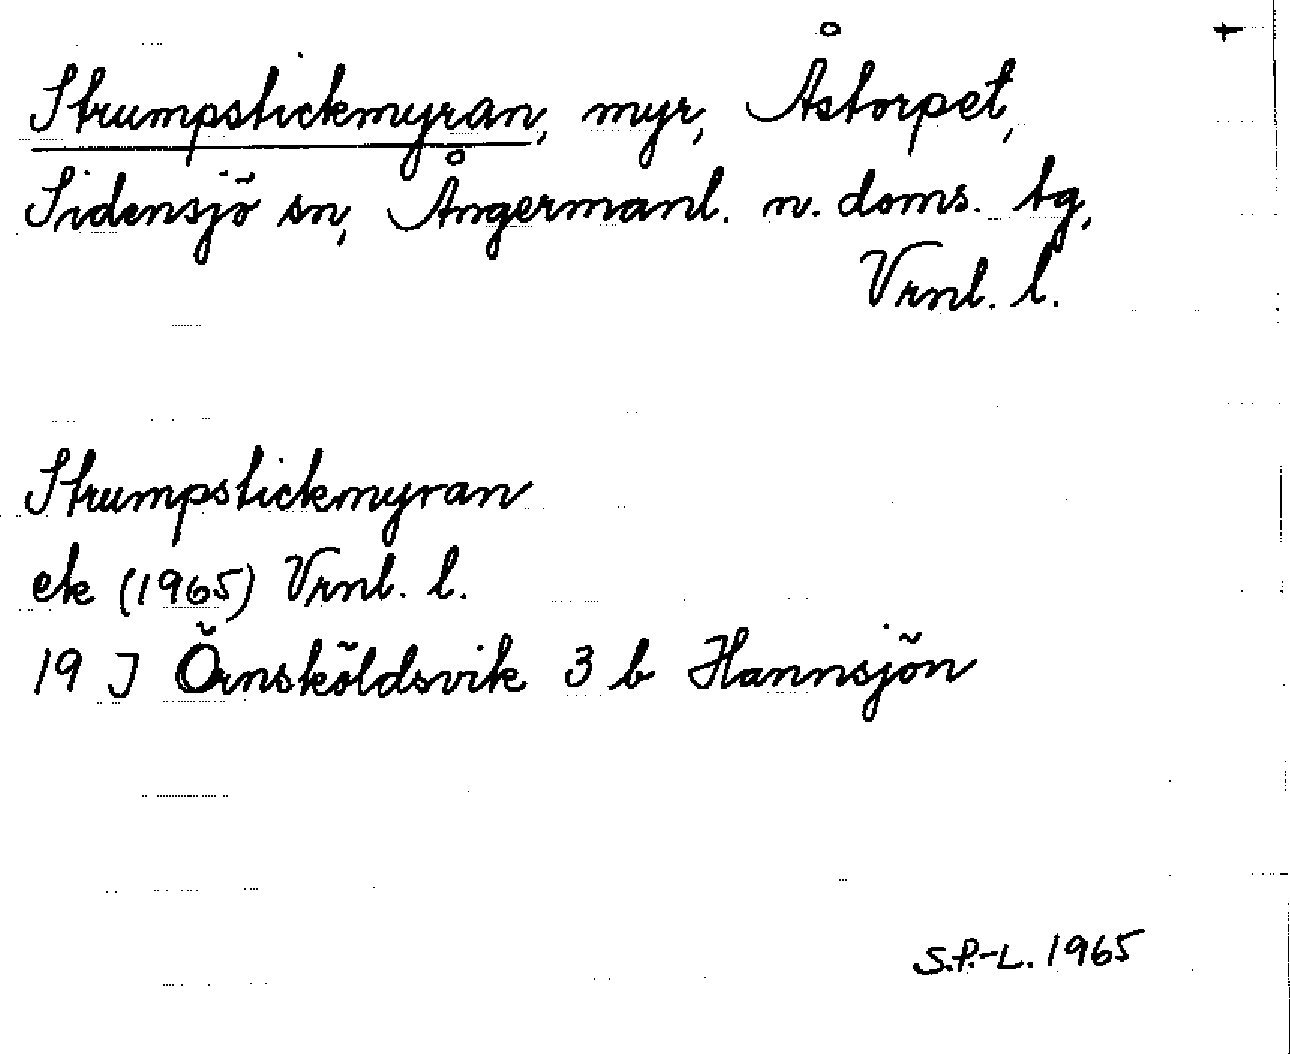 Strumpstickmyran, myr, Åstorpet,
Sidensjö sn, Ångermanl. n. doms. tg,
Vrnl. l.
Strumpstickmyran
ek (1965) Vrnl. l.
19 J Örnsköldsvik 3 b Hannsjön
S.P.-L. 1965